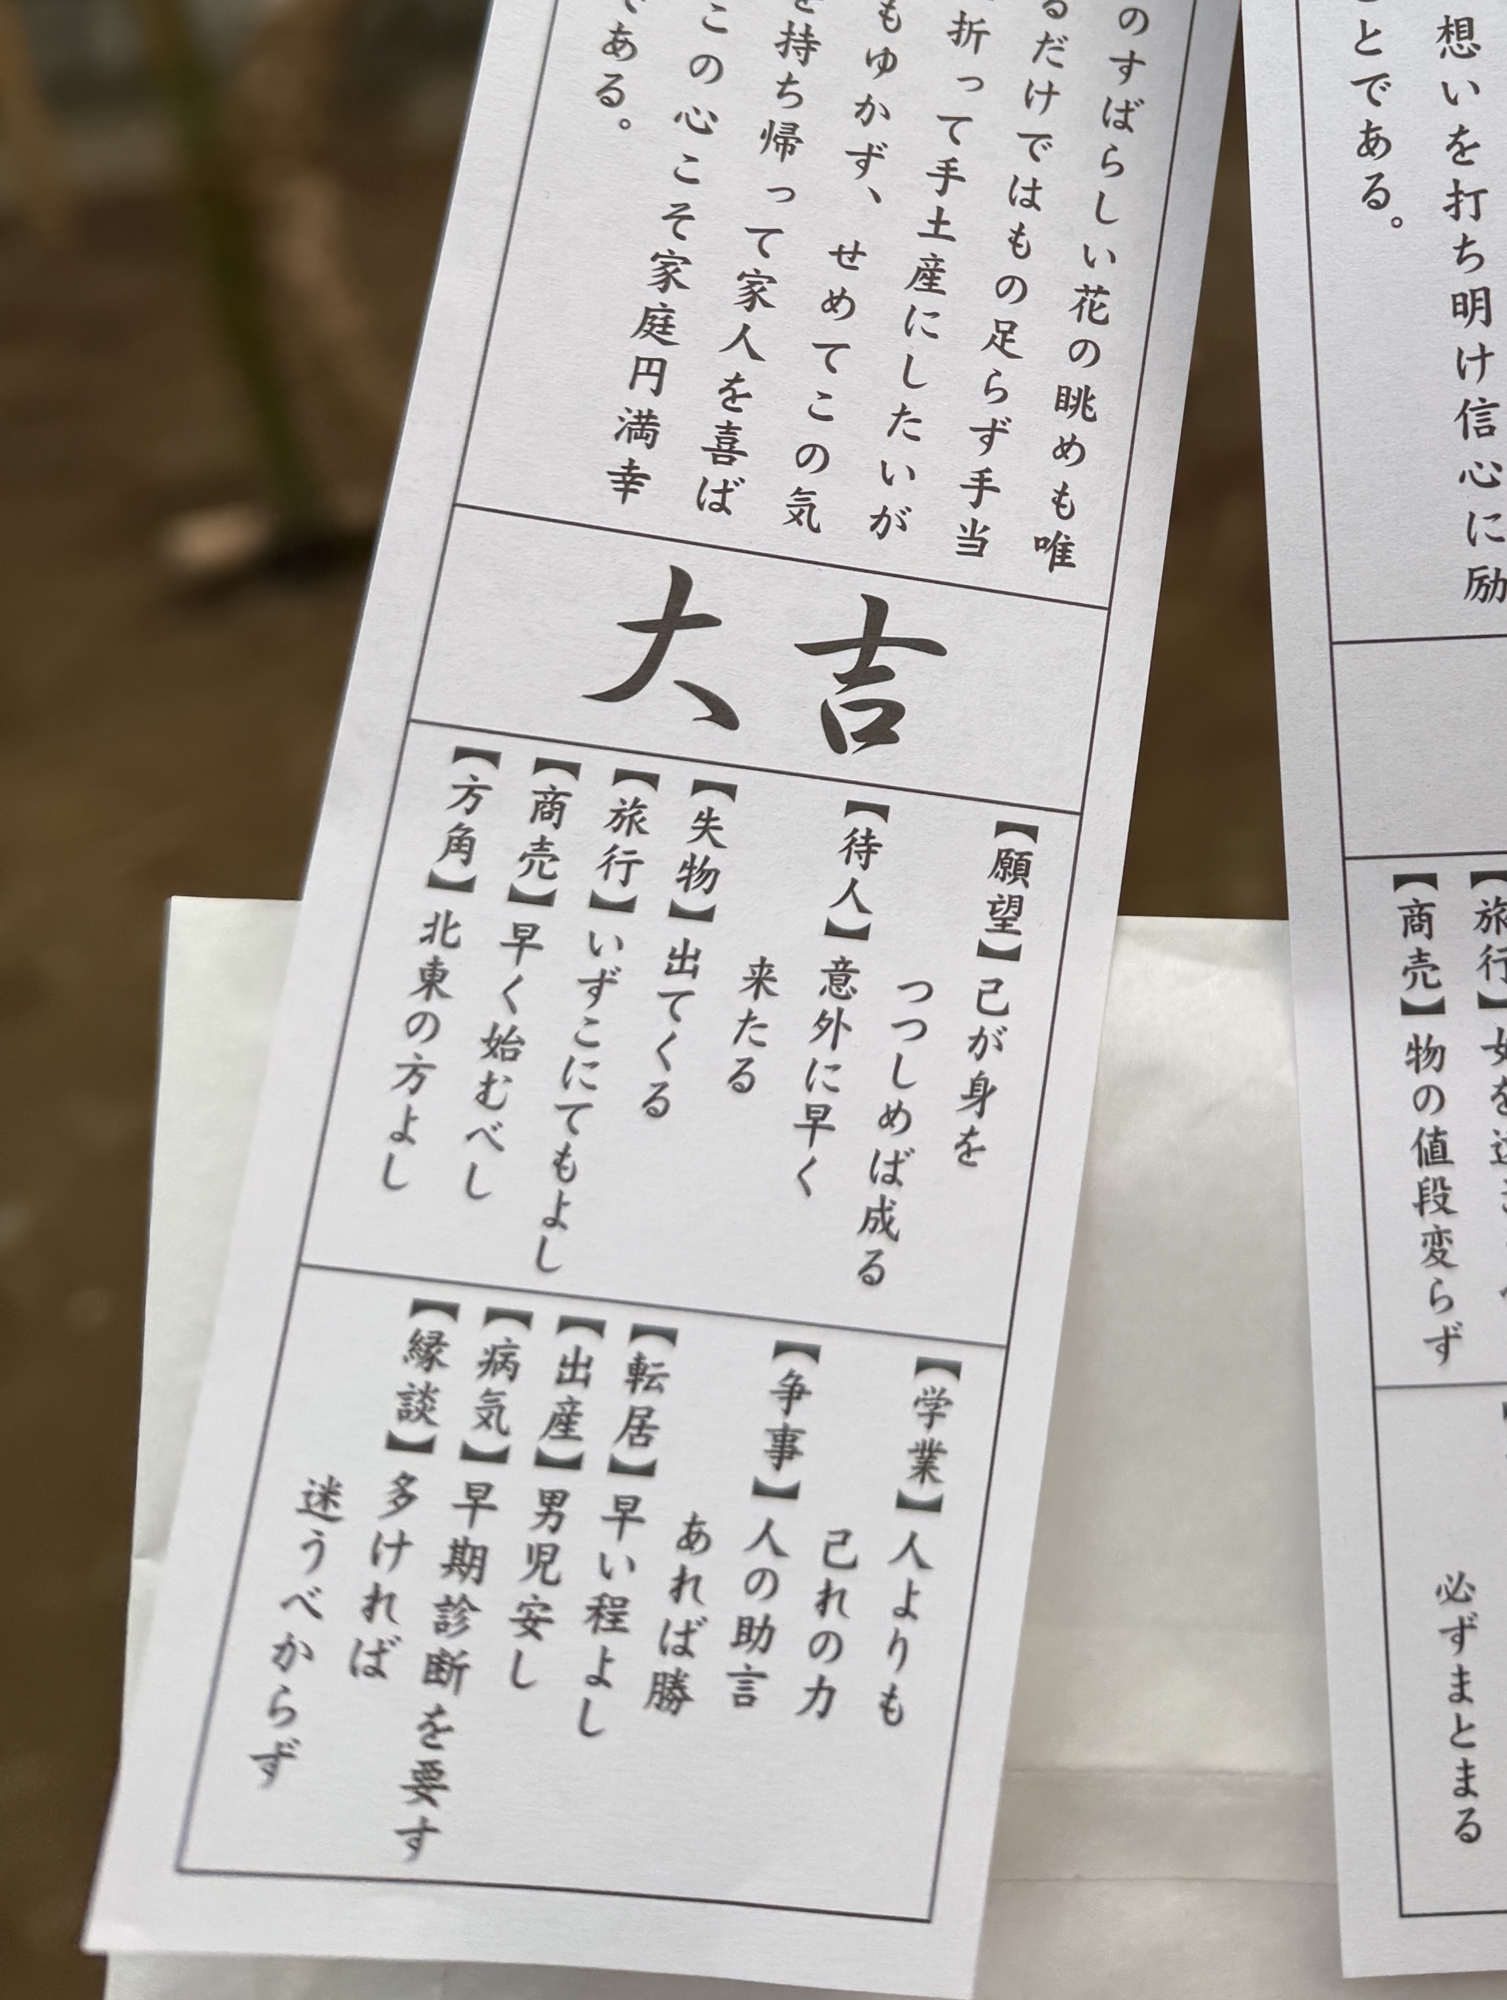 のすばらしい花の眺めも唯
るだけではもの足らず手当
折って手土産にしたいが
もゆかず、せめてこの気
を持ち帰って家人を喜ば
この心こそ家庭円満幸
である。
大吉
【願望】己が身を
つつしめば成る
【待人】意外に早く
来たる
【失物】出てくる
【旅行】いずこにてもよし
【商売】早く始むべし
【方角】北東の方よし
【学業】人よりも
己れの力
【争事】人の助言
あれば勝
【転居】早い程よし
【出産】男児安し
【病気】早期診断を要す
【縁談】多ければ
迷うべからず
想いを打ち明け信心に励
とである。
【旅行】
【商売】物の値段変らず
必ずまとまる